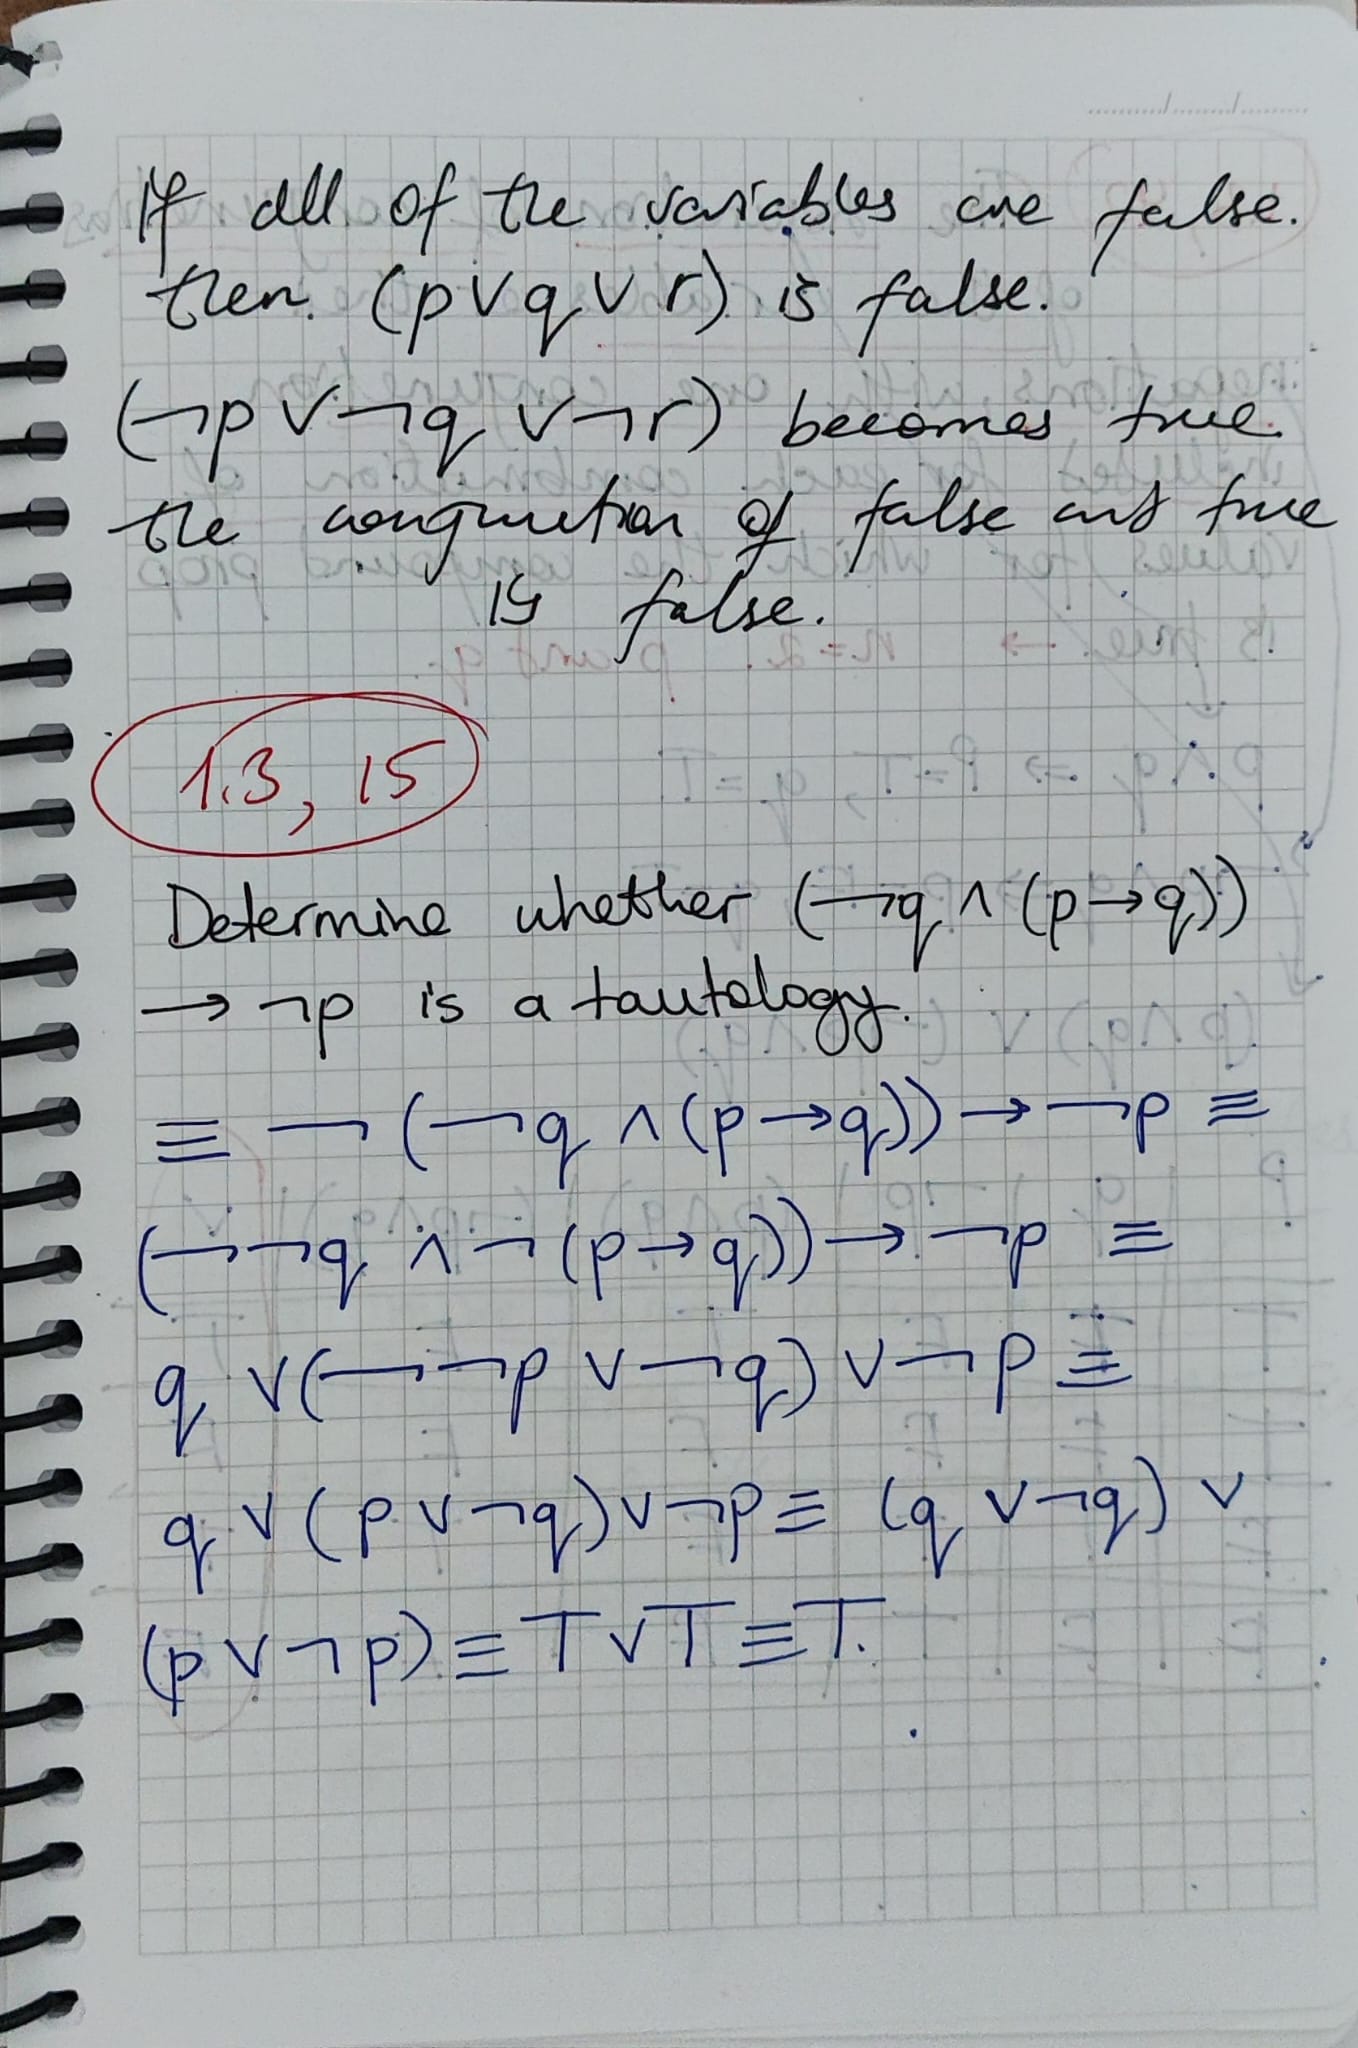 If all of the variables are false.
then. (p∨q∨r) is false.
(¬p∨¬q∨¬r) becomes true.
the conjunction of false and true
is false.
1.3, 15
Determine whether (¬q∧(p→q))
→¬p is a tautology.
≡ ¬(¬q∧(p→q))→¬p ≡
(¬¬q∧¬(p→q))→¬p ≡
q∨(¬¬p∨¬q)∨¬p≡
q∨(p∨¬q)∨¬p≡ (q∨¬q)∨
(p∨¬p)≡T∨T≡T.